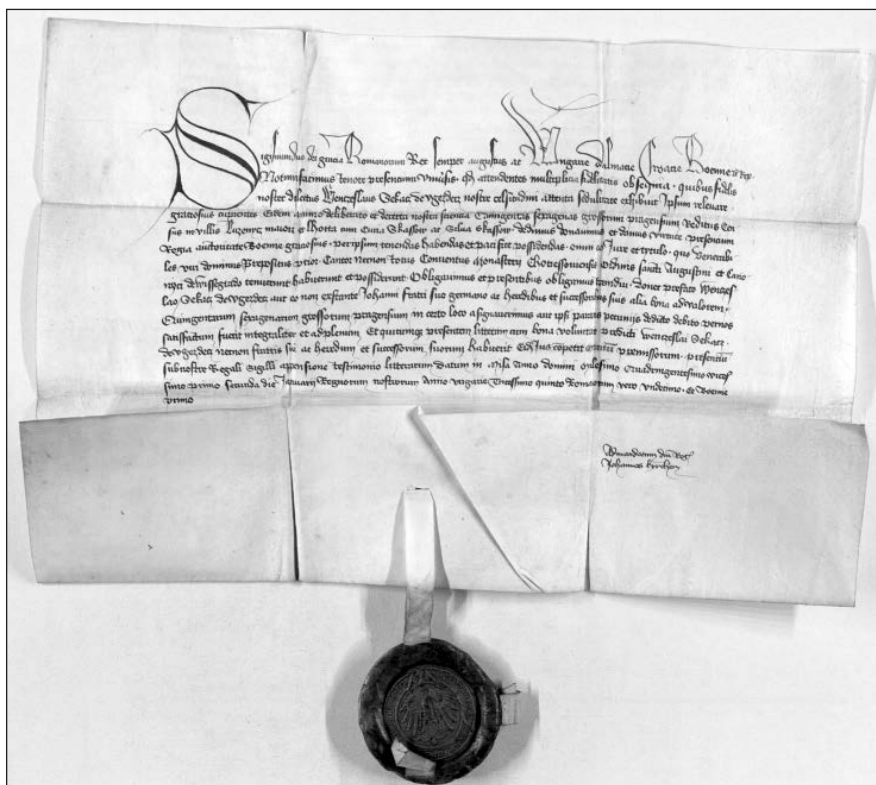 Sigismundus dei gracia Romanorum Rex semper augustus ac Ungarie Dalmacie Croacie Boemie Rex
Notumfacimus tenore presentium Universis. Qd attendentes multiplicia fidelitatis obsequia. quibus fidelis
noster dilectus Wenczeslaus Sekacz de nostre celsitudini attenta sedulitate exhibuit Ipsum relevare
graciosius cupientes Eidem animo deliberato et de certa nostra sciencia Quingentas sexagenas grossorum pragensium Reditus Cen
sus in villis maiori et lhotta cum Curia Skassow ac Silva Skassow dedimus donavimus et damus virtute presencium
Regia auctoritate Boemie graciosius. per ipsum tenendas habendas et pacifice possidendas. cum Jure et tytulo. quo Venerabi
les viri dominus Prepositus prior. Cantor necnon totus Conventus Monasterij Ordinis sancti Augustini et
tenuerunt habuerunt et possiderunt. Obligavimus et presentibus obligamus tamdiu. donec prefato Wenczes
lao Sekacz aut eo non exstante Johanni fratri suo germano ac heredibus et successoribus suis alia bona ad valorem
Quingentarum sexagenarum grossorum pragensium in certo loco assignaverimus aut ipsis paratis pecunijs de dicto debito per nos
satisfactum fuerit integraliter et ad plenum. Et quicunque presentem litteram cum bona voluntate predicti Wenczeslai Sekacz.
necnon fratris sui ac heredum et successorum suorum habuerit Ei Jus competit omnium premissorum. presencium
sub nostre Regalis sigilli appensione testimonio litterarum Datum in Anno domini Millesimo Quadringentesimo vices
simo primo secunda die Januarij Regnorum nostrorum Anno Ungarie Tricesimo quinto Romanorum vero Undecimo. et Boemie
primo
Ad mandatum dni Regis
Johannes kirchen